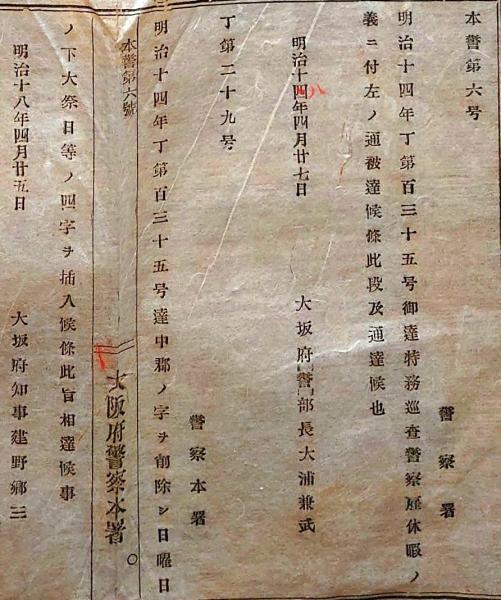 本警第六号
警察署
明治十四年丁第百三十五号御達特務巡査警察雇休暇ノ
義ニ付左ノ通被達候條此段及通達候也
明治十四年四月廿七日
八
大坂府警部長大浦兼武
丁第二十九号
警察本署
明治十四年丁第百三十五号達中郡ノ字ヲ削除シ日曜日
本警第六號
大阪府警察本署
ノ下大祭日等ノ四字ヲ插入候條此旨相達候事
明治十八年四月廿五日
大坂府知事建野郷三